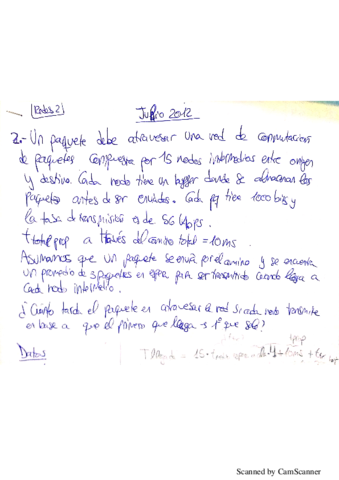 Redes 2
Junio 2012
2.- Un paquete debe atravesar una red de conmutación
de paquetes compuesta por 15 nodos intermedios entre origen
y destino. Cada nodo tiene un buffer donde se almacenan los
paquetes antes de ser enviados. Cada pq tiene 1000 bits y
la tasa de transmisión es de 56 kbps.
t total prop a través del camino total = 10 ms.
Asumamos que un paquete se envía por el camino y se encuentra
un promedio de 3 paquetes en espera para ser transmitido cuando llega a
cada nodo intermedio.
¿Cuánto tarda el paquete en atravesar la red si cada nodo transmite
en base a que el primero que llega es 1º que sale?
Datos
Scanned by CamScanner